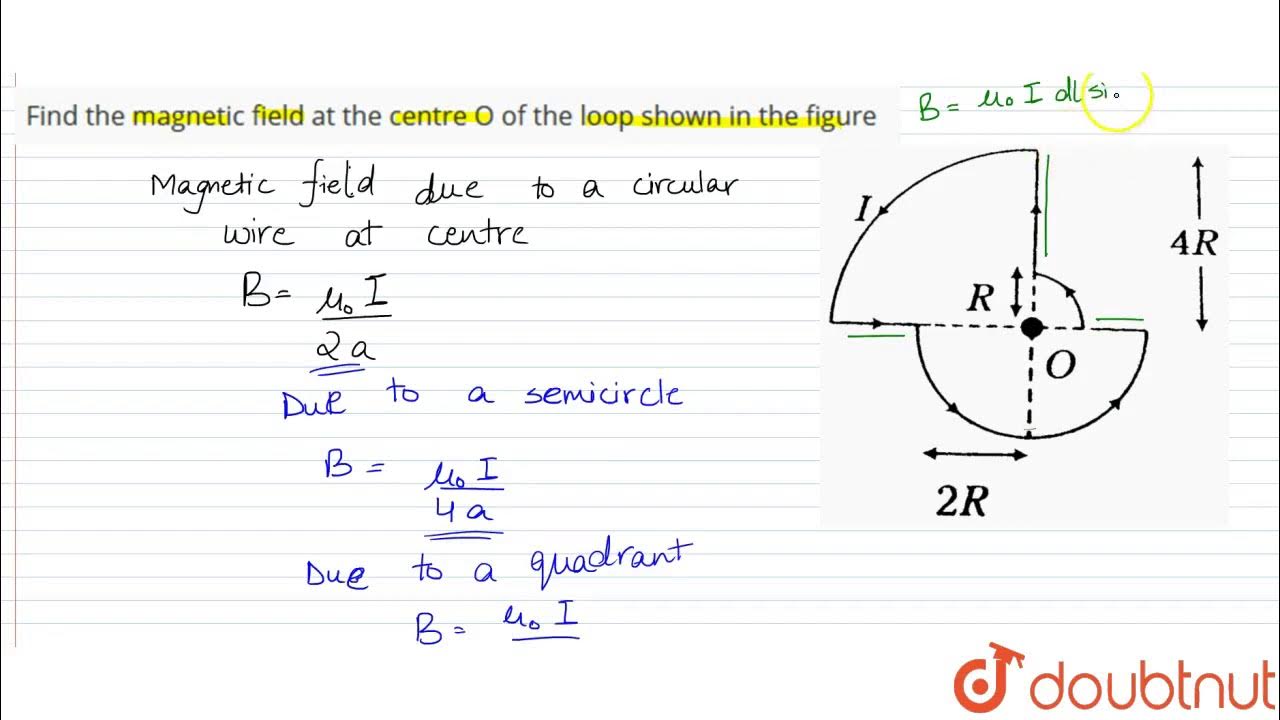 Find the magnetic field at the centre O of the loop shown in the figure
B = μ₀ I dl si
Magnetic field due to a circular
wire at centre
B = μ₀ I
2a
Due to a semicircle
B = μ₀ I
4a
Due to a quadrant
B = μ₀ I
I
R
4R
O
2R
doubtnut